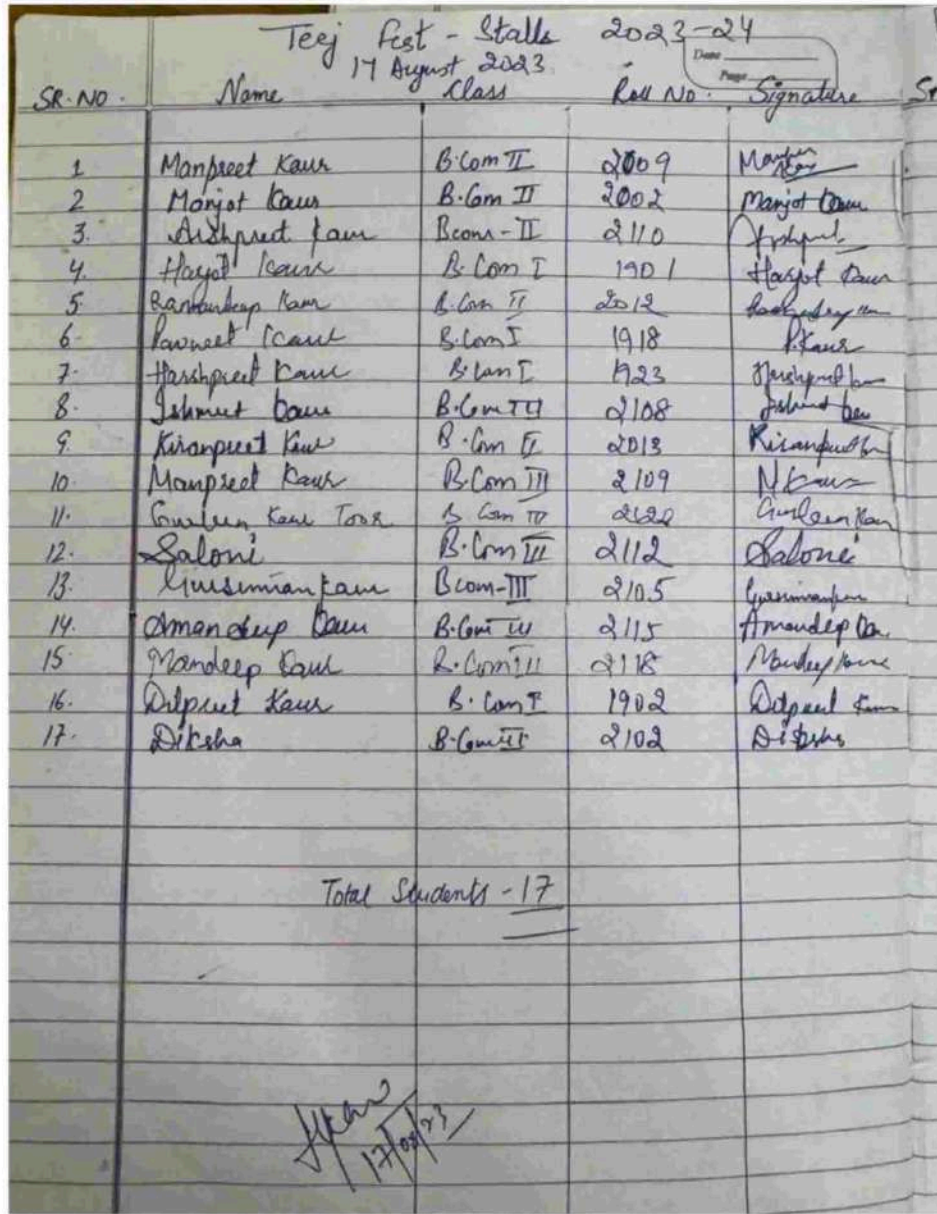 Teej Fest - Stalls 2023-24
17 August 2023
Date
Page
SR. NO. Name Class Roll No. Signature Sr
1 Manpreet Kaur B.Com II 2009 Kaur
2 Manjot Kaur B.Com II 2002 Manjot Kaur
3. Arshpreet Kaur Bcom-II 2110
4. Harjot Kaur B.Com I 1901 Harjot Kaur
5. Ramandeep Kaur B.Com II 2012
6. Pavneet Kaur B.Com I 1918 P.Kaur
7. Harshpreet Kaur B.Com I 1923 Harshpreet Kaur
8. Ishmeet Kaur B.Com III 2108 Ishmeet Kaur
9. Kiranpreet Kaur B.Com II 2013 Kiranpreet
10. Manpreet Kaur B.Com III 2109 M.Kaur
11. Gurleen Kaur Toor B.Com III Gurleen Kaur
12. Saloni B.Com III 2112 Saloni
13. Gursimran Kaur Bcom-III 2105
14. Amandeep Kaur B.Com III 2115 Amandeep Kaur
15. Mandeep Kaur B.Com III 2118 Mandeep Kaur
16. Dilpreet Kaur B.Com I 1902 Dilpreet Kaur
17. Diksha B.Com III 2102 Diksha
Total Students - 17
17/08/23